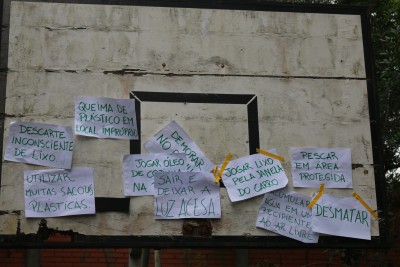 QUEIMA DE
PLÁSTICO EM
LOCAL IMPRÓPRIO
DESCARTE
INCONSCIENTE
DE LIXO
UTILIZAR
MUITAS SACOLAS
PLÁSTICAS.
DEMORAR
NO
JOGAR ÓLEO
DE
NA
SAIR E
DEIXAR A
LUZ ACESA
JOGAR LIXO
PELA JANELA
DO CARRO
PESCAR
EM ÁREA
PROTEGIDA
ÁGUA EM UM
RECIPIENTE
AO AR LIVRE
DESMATAR